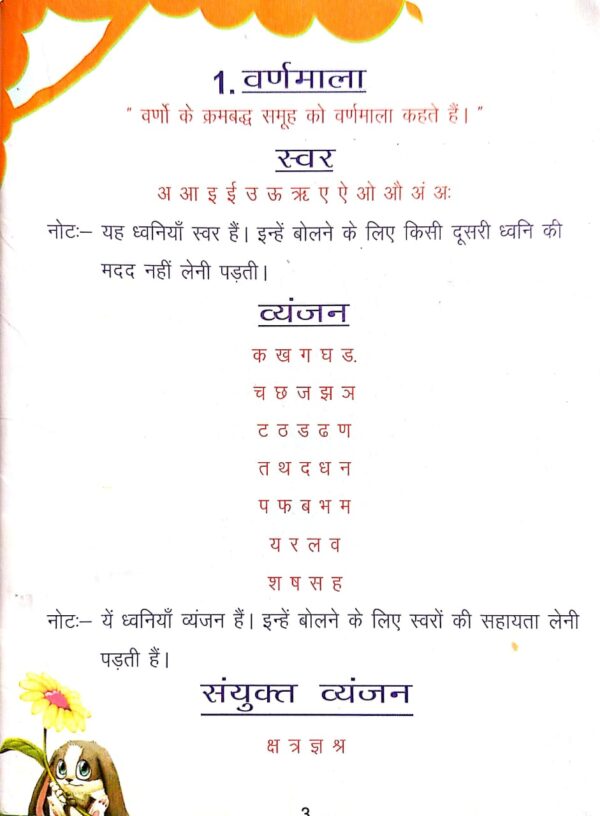 1. वर्णमाला
" वर्णो के क्रमबद्ध समूह को वर्णमाला कहते हैं। "
स्वर
अ आ इ ई उ ऊ ऋ ए ऐ ओ औ अं अः
नोटः– यह ध्वनियाँ स्वर हैं। इन्हें बोलने के लिए किसी दूसरी ध्वनि की
मदद नहीं लेनी पड़ती।
व्यंजन
क ख ग घ ड.
च छ ज झ ञ
ट ठ ड ढ ण
त थ द ध न
प फ ब भ म
य र ल व
श ष स ह
नोटः– यें ध्वनियाँ व्यंजन हैं। इन्हें बोलने के लिए स्वरों की सहायता लेनी
पड़ती हैं।
संयुक्त व्यंजन
क्ष त्र ज्ञ श्र
3